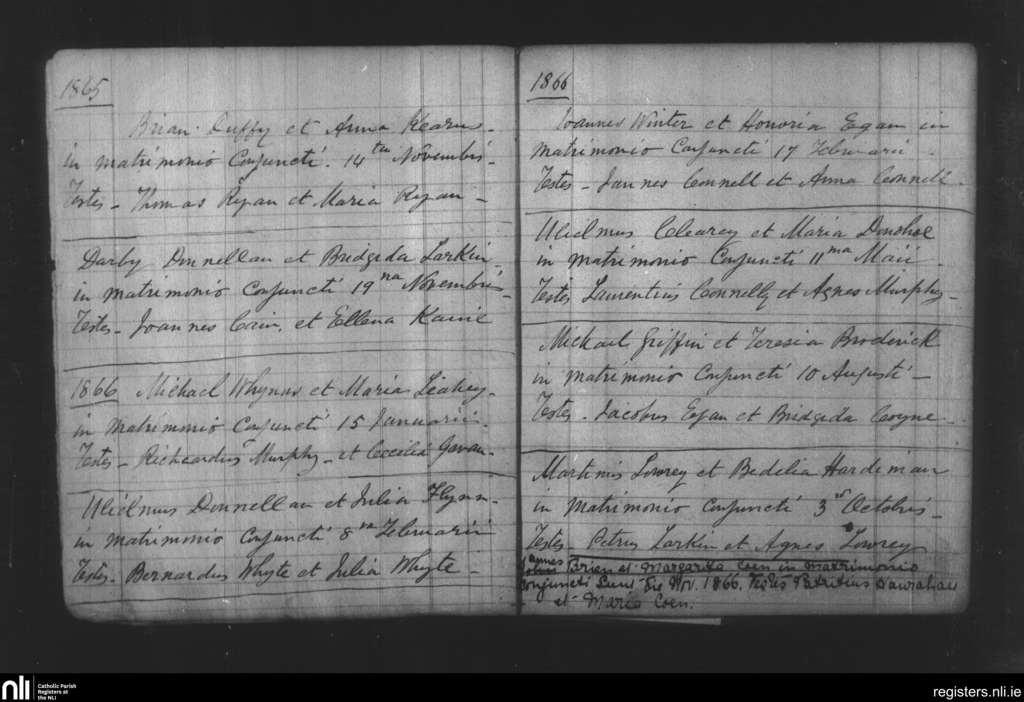 1865
Brian Duffy et Anna Kearns -
in matrimonio Conjuncti. 14 tu Novembris -
Testes - Thomas Ryan et Maria Ryan -
Darby Donnellan et Bridgida Larkin
in matrimonio Conjuncti 19 na Novembris -
Testes - Joannes Cain, et Ellena Kaine
1866 Michael Whynns et Maria Leahey -
in Matrimonio Conjuncti 15 Januarii -
Testes - Richardus Murphy - et Cecilia Gavan -
Ulielmus Donnellan et Julia Flynn -
in Matrimonio Conjuncti 8 va Februarii
Testes - Bernardus Whyte et Julia Whyte -
1866
Joannes Winter et Honoria Egan in
Matrimonio Conjuncti 17 Februarii -
Testes - Jaunes Connell et Anna Connell -
Ulielmus Clearey et Maria Donohoe
in Matrimonio Conjuncti 11 ma Maii -
Testes Laurentius Connelly et Agnes Murphy -
Michael Griffin et Teresia Broderick
in Matrimonio Conjuncti 10 Augusti -
Testes - Jacobus Egan et Bridgida Coyne -
Martinis Lowrey et Bedelia Hardiman
in Matrimonio Conjuncti 3 Octobris -
Testes - Petrus Larkin et Agnes Lowrey
Brien et Margarita Coen in Matrimonio
Conjuncti sunt Die Nov. 1866. Testes Patritius Hanrahan
et Maria Coen.
nli Catholic Parish
Registers at
the NLI
registers.nli.ie